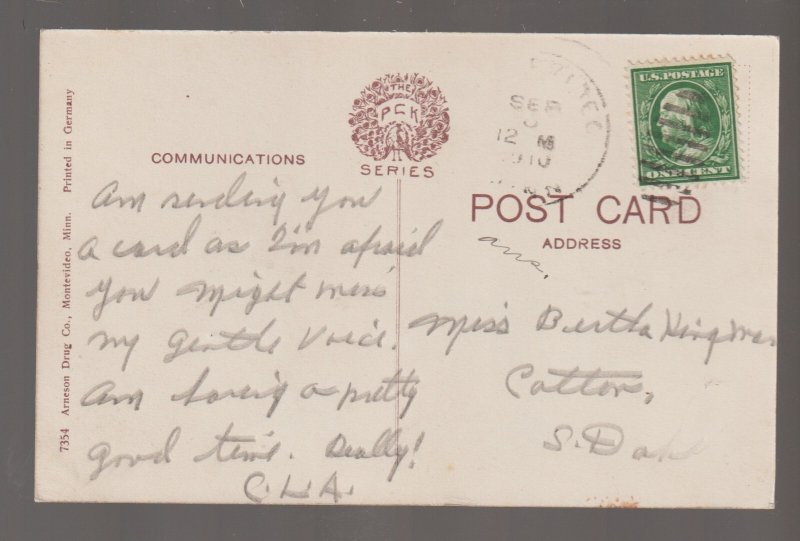 7354 Arneson Drug Co., Montevideo, Minn. Printed in Germany
COMMUNICATIONS
THE
PCK
SERIES
SEP
12 M
1910
U.S. POSTAGE
ONE CENT
POST CARD
ADDRESS
ans.
Am sending you
a card as I'm afraid
you might miss
my gentle voice.
Am having a pretty
good time. Really!
C.L.A.
Miss Bertha Kingman
Cotton,
S. Dak